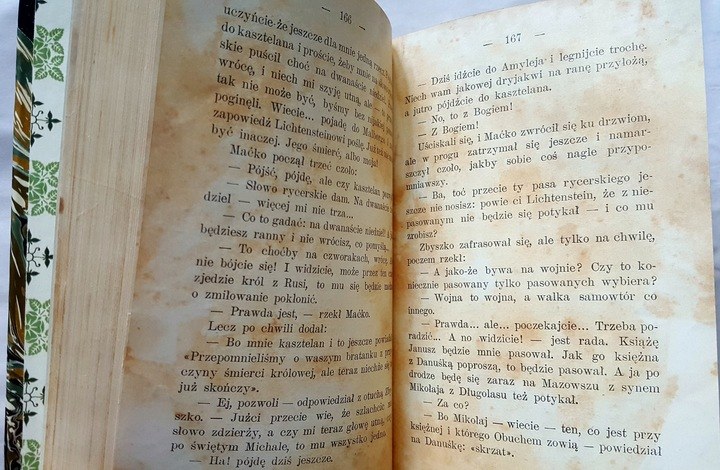 — 166 —
uczyńcie że jeszcze dla mnie jedną rzecz
do kasztelana i proście, żeby mnie na
skie puścił choć na dwanaście niedziel
wrócę, i niech mi szyję utną, ale
tak nie może być, byśmy bez
poginęli. Wiecie... pojadę do Malborga
zapowiedź Lichtensteinowi poślę. Już
być inaczej. Jego śmierć, albo moja!
Maćko począł trzeć czoło:
— Pójść, pójdę, ale czy kasztelan
— Słowo rycerskie dam. Na dwanaście
dziel — więcej mi nie trza...
— Co to gadać: na dwanaście niedziel! A
będziesz ranny i nie wrócisz, co pomyślą
— To choćby na czworakach, wrócę.
nie bójcie się! I widzicie, może przez ten
zjedzie król z Rusi, to mu się będzie
o zmiłowanie pokłonić.
— Prawda jest, — rzekł Maćko.
Lecz po chwili dodał:
— Bo mnie kasztelan i to jeszcze
«Przepomnieliśmy o waszym bratanku z
czyny śmierci królowej, ale teraz niechże się
już skończy».
— Ej, pozwoli — odpowiedział z otuchą
szko. — Jużci przecie wie, że szlachcic
słowo zdzierży, a czy mi teraz głowę utną,
po świętym Michale, to mu wszystko jedno.
— Ha! pójdę dziś jeszcze.
— 167 —
— Dziś idźcie do Amyleja i legnijcie trochę.
Niech wam jakowej dryjakwi na ranę przyłożą,
a jutro pójdźcie do kasztelana.
— No, to z Bogiem!
— Z Bogiem!
Uściskali się, i Maćko zwrócił się ku drzwiom,
ale w progu zatrzymał się jeszcze i namar-
szczył czoło, jakby sobie coś nagle przypo-
mniawszy.
— Ba, toć przecie ty pasa rycerskiego je-
szcze nie nosisz: powie ci Lichtenstein, że z nie-
pasowanym nie będzie się potykał — i co mu
zrobisz?
Zbyszko zafrasował się, ale tylko na chwilę,
poczem rzekł:
— A jako-że bywa na wojnie? Czy to ko-
niecznie pasowany tylko pasowanych wybiera?
— Wojna to wojna, a walka samowtór co
innego.
— Prawda... ale... poczekajcie... Trzeba po-
radzić... A no widzicie! — jest rada. Książę
Janusz będzie mnie pasował. Jak go księżna
z Danuśką poproszą, to będzie pasował. A ja po
drodze będę się zaraz na Mazowszu z synem
Mikołaja z Długolasu też potykał.
— Za co?
— Bo Mikołaj — wiecie — ten, co jest przy
księżnej i którego Obuchem zowią — powiedział
na Danuśkę: «skrzat».